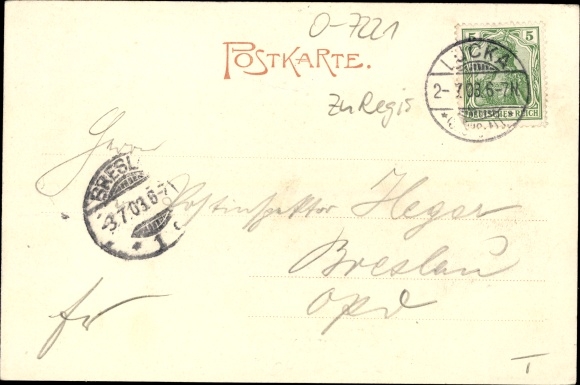 O-7221
POSTKARTE.
5
DEUTSCHES REICH
LUCKA
2-7.03.6-7N.
Zu Regis
Herrn
Postinspektor Heger
BRESLAU
3.7.03.6-7
* 1
Breslau
Opd
fr
I